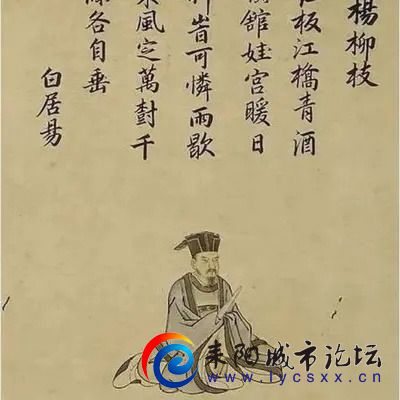 楊柳枝
板江橋青酒
館娃宮暖日
旹可憐雨歇
風定萬樹千
各自垂
白居易
耒阳城市论坛
www.lycsxx.cn.com